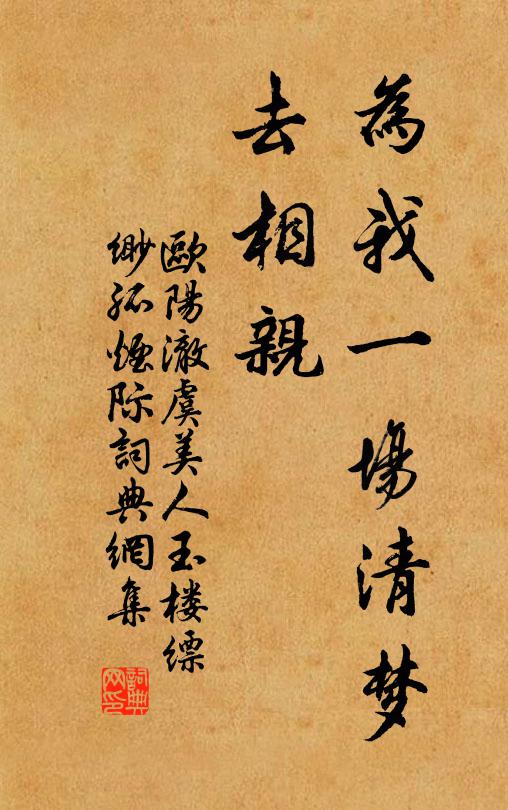 為我一場清梦
去相親
歐陽澈虞美人玉楼縹
緲孤煙際詞典網集
詞典
网印